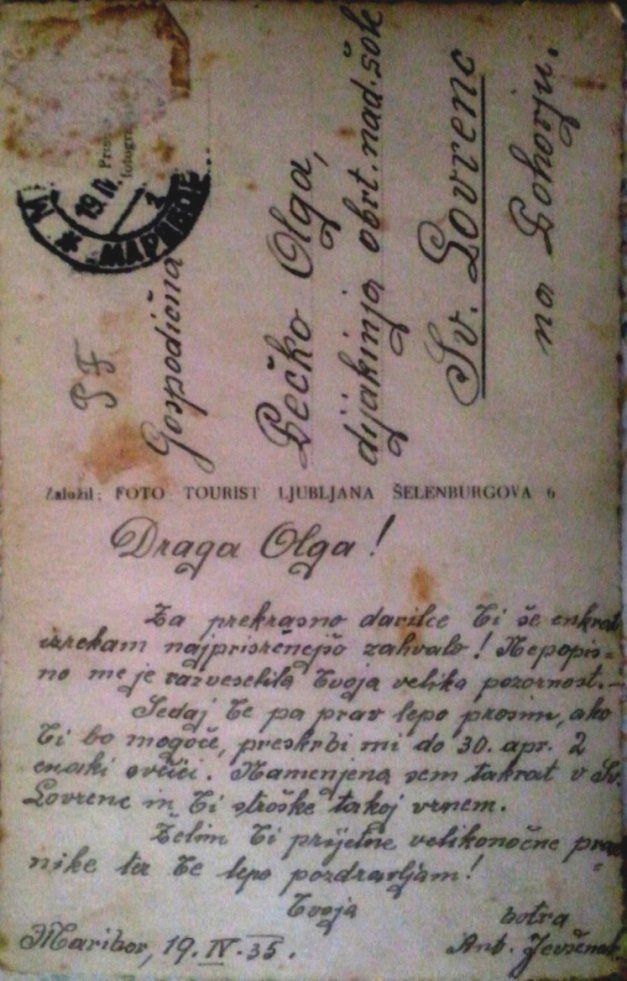 19.IV.
МАРИБОР
Gospodična
Pečko Olga,
dijakinja obrt. nad. šol.
Sv. Lovrenc
na Pohorju.
Založil: FOTO TOURIST LJUBLJANA ŠELENBURGOVA 6
Draga Olga!
Za prekrasno darilce Ti še enkrat
izrekam najprisrčnejšo zahvalo! Nepopis=
no me je razveselila Tvoja velika pozornost.-
Sedaj Te pa prav lepo prosim, ako
Ti bo mogoče, preskrbi mi do 30. apr. 2
enaki ovčici. Namenjena sem takrat v Sv.
Lovrenc in Ti stroške takoj vrnem.
Želim Ti prijetne velikonočne praz=
nike ter Te lepo pozdravljam!
Tvoja
botra
Maribor, 19. IV. 35.
Ant.